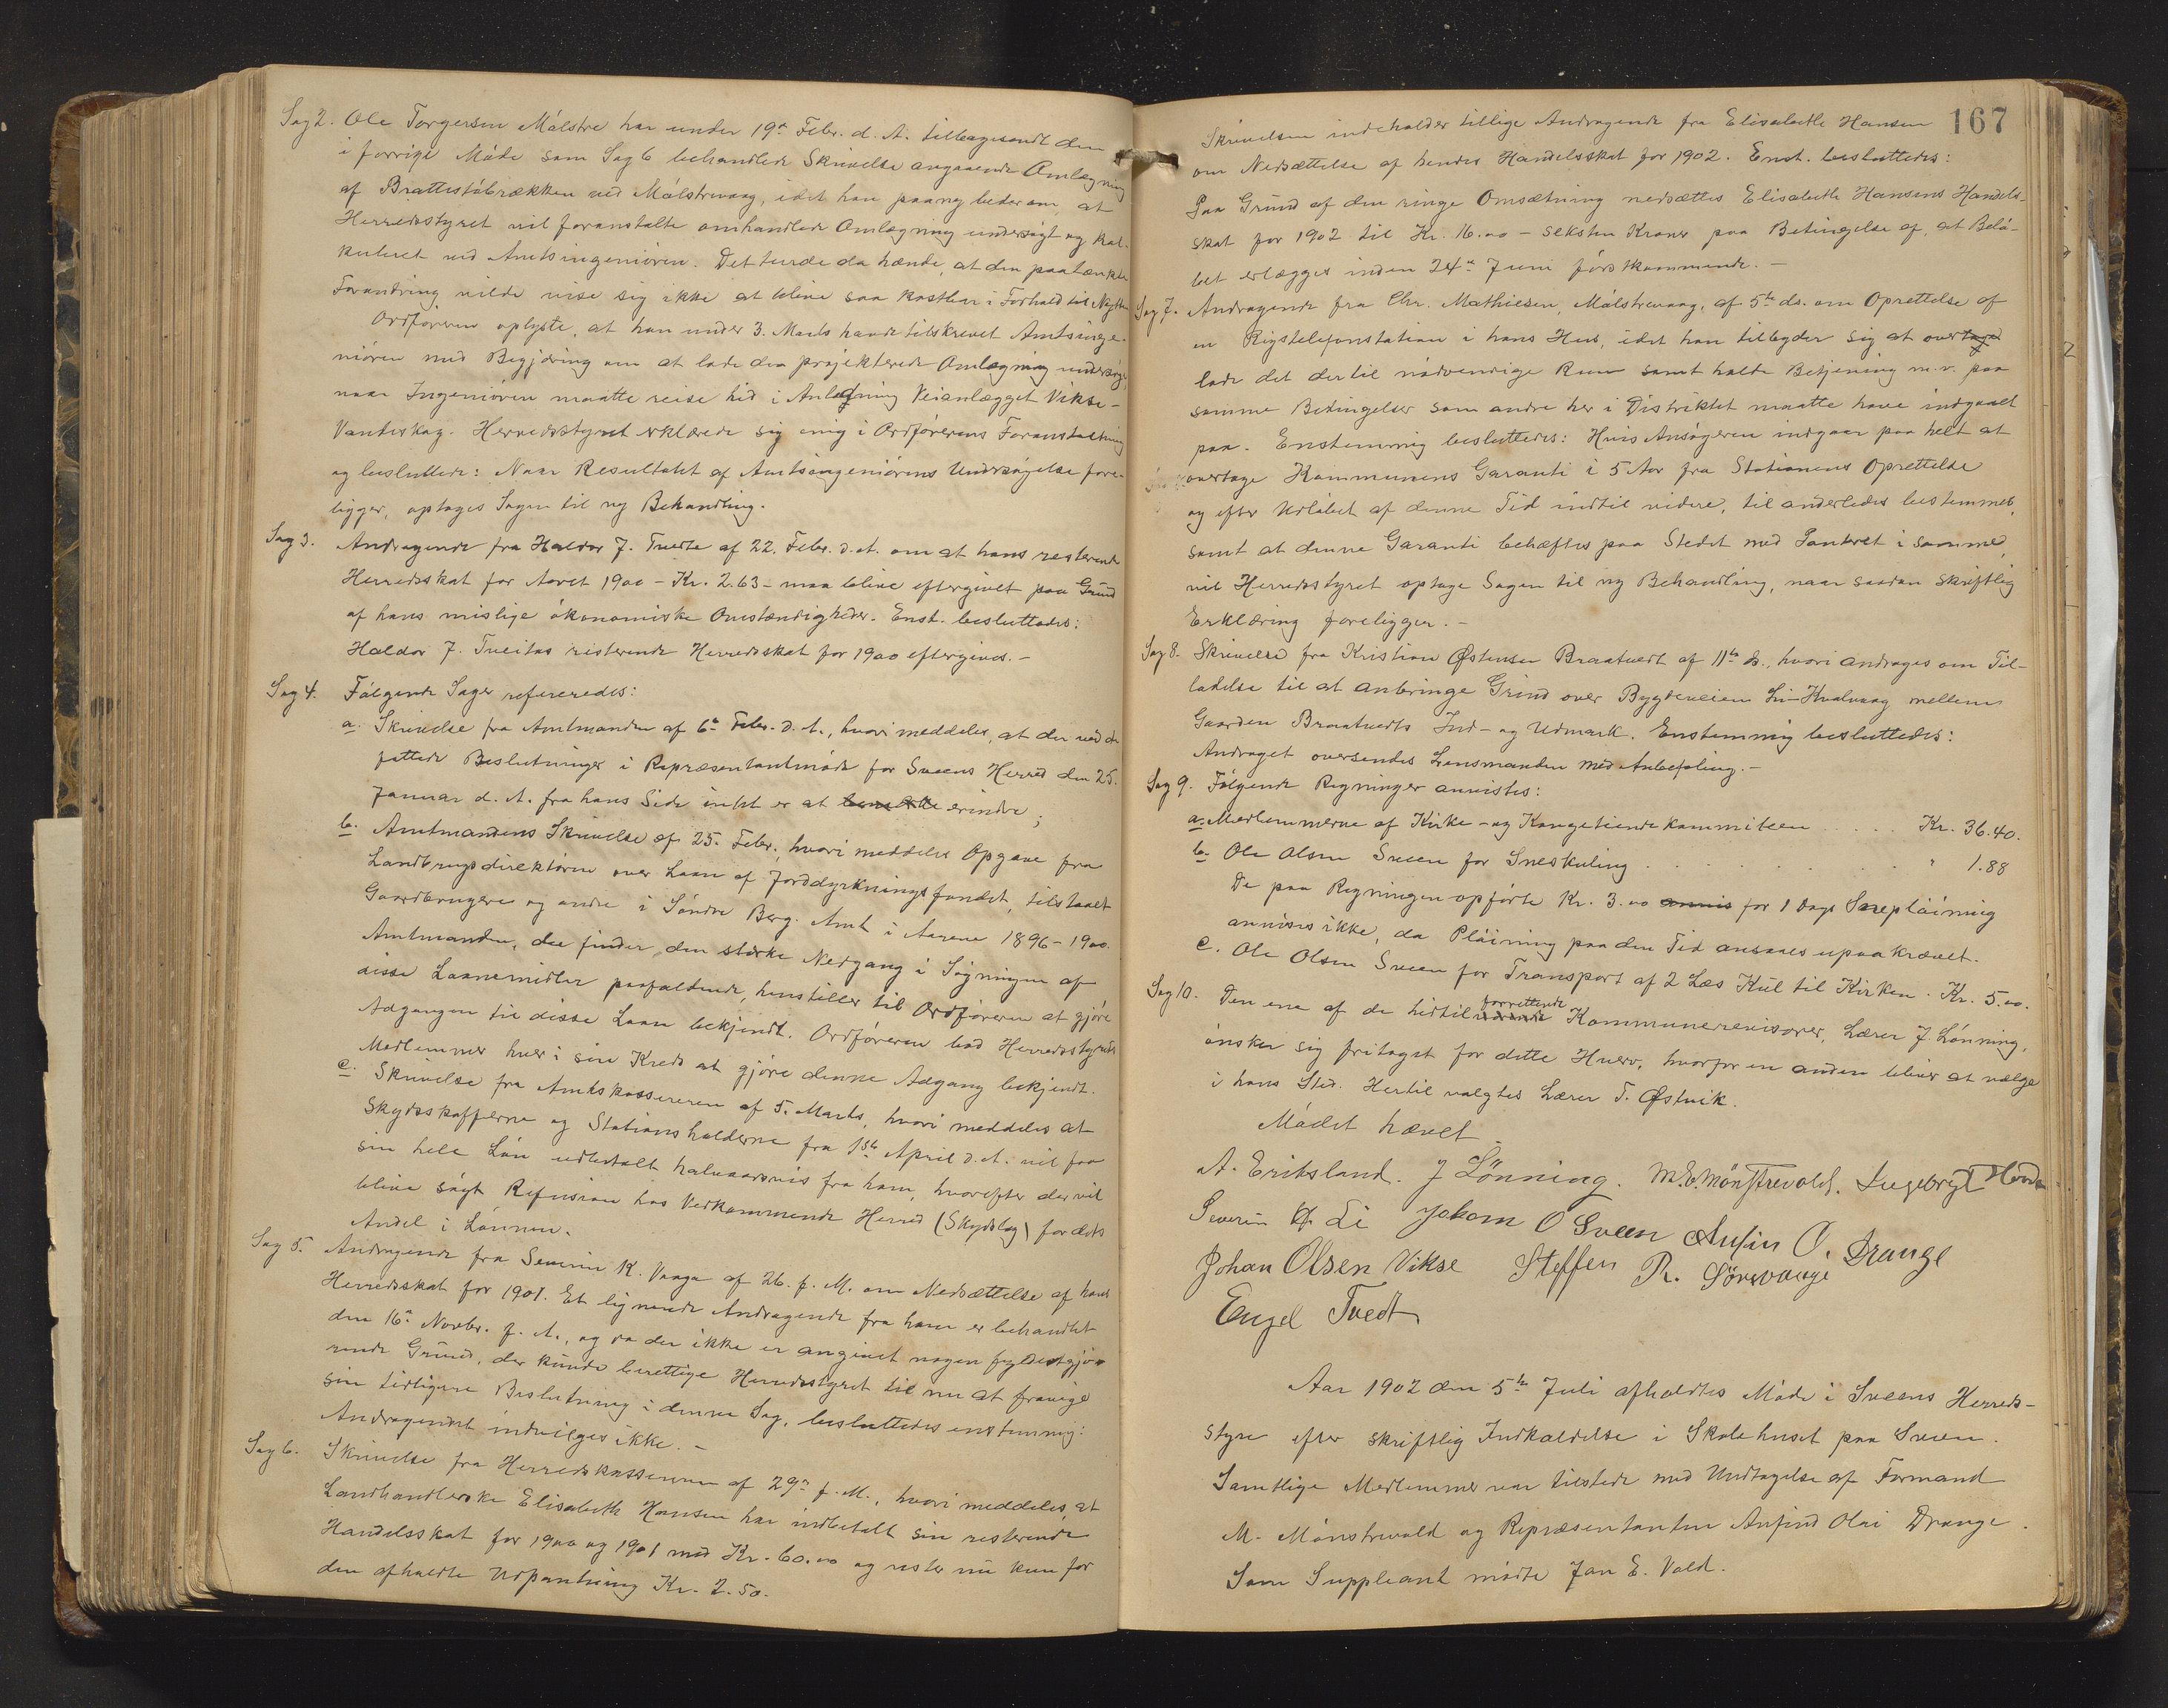 Sag 2. Ole Torgersen Målstre har under 19de Febr. d. A. tilbagesendt den
i forrige Møde som Sag 6 behandlede Skrivelse angaaende Omlægning
af Brattestøbrækken ved Målstrevaag, idet han paany beder om, at
Herredsstyret vil foranstalte omhandlede Omlægning undersøgt og kal-
kuleret ved Amtsingeniøren. Det turde da hænde, at den paatænkte
Forandring vilde vise sig ikke at blive saa kostbar i Forhold til Nytten
Ordføreren oplyste, at han under 3. Marts havde tilskrevet Amtsinge-
niøren med Begjæring om at lade den projekterede Omlægning undersøge,
naar Ingeniøren maatte reise hid i Anledning Veianlægget Vikse-
Vandeskog. Herredsstyret erklærede sig enig i Ordførerens Foranstaltning
og besluttede: Naar Resultatet af Amtsingeniørens Undersøgelse fore-
ligger, optages Sagen til ny Behandling.
Sag 3. Andragende fra Haldor J. Tveite af 22. Febr. d. A. om at hans resterende
Herredsskat for Aaret 1900 – Kr. 2.63 – maa blive eftergivet paa Grund
af hans mislige økonomiske Omstændigheder. Enst. besluttedes:
Haldor J. Tveites resterende Herredsskat for 1900 eftergives. –
Sag 4. Følgende Sager refereredes:
a. Skrivelse fra Amtmanden af 6te Febr. d. A., hvori meddeles, at der ved de
fattede Beslutninger i Repræsentantmøde for Sveens Herred den 25.
Januar d. A. fra hans Side intet er at erindre;
b. Amtmandens Skrivelse af 25. Febr., hvori meddeles Opgave fra
Landbrugsdirektøren over Laan af Jorddyrkningsfondet, tilstaaet
Gaardbrugere og andre i Søndre Berg. Amt i Aarene 1896–1900.
Amtmanden, der finder den stærke Nedgang i Søgningen af
disse Laanemidler paafaldende, henstiller til Ordføreren at gjøre
Adgangen til disse Laan bekjendt. Ordføreren bad Herredsstyrets
Medlemmer hver i sin Kreds at gjøre denne Adgang bekjendt.
c. Skrivelse fra Amtskassereren af 5. Marts, hvori meddeles at
Skydsskafferne og Stationsholderne fra 1ste April d. A. vil faa
sin hele Løn udbetalt halvaarsvis fra ham, hvorefter der vil
blive søgt Refusion hos Vedkommende Herred (Skydslag) for dets
Andel i Lønnen.
Sag 5. Andragende fra Severin K. Vaage af 26. f. M. om Nedsættelse af hans
Herredsskat for 1901. Et lignende Andragende fra ham er behandlet
den 16de Novbr. f. A., og da der ikke er angivet nogen fyldestgjø-
rende Grund, der kunde berettige Herredsstyret til nu at fravige
sin tidligere Beslutning i denne Sag, besluttedes enstemmig:
Andragendet indvilges ikke. –
Sag 6. Skrivelse fra Herredskassereren af 29de f. M., hvori meddeles, at
Landhandlerske Elisabeth Hansen har indbetalt sin resterende
Handelsskat for 1900 og 1901 med Kr. 60.00 og rester nu kun for
den afholdte Udpantning Kr. 2.50.
167
Skrivelsen indeholder tillige Andragende fra Elisabeth Hansen
om Nedsættelse af hendes Handelsskat for 1902. Enst. besluttedes:
Paa Grund af den ringe Omsætning nedsættes Elisabeth Hansens Handels-
skat for 1902 til Kr. 16.00 – seksten Kroner paa Betingelse af, at Belø-
bet erlægges inden 24de Juni førstkommende. –
Sag 7. Andragende fra Chr. Mathiesen, Målstrevaag, af 5te ds. om Oprettelse af
en Rigstelefonstation i hans Hus, idet han tilbyder sig at overtage
lade det dertil nødvendige Rum samt holde Betjening m. v. paa
samme Betingelser som andre her i Distriktet maatte have indgaaet
paa. Enstemmig besluttedes: Hvis Ansøgeren indgaar paa helt at
overtage Kommunens Garanti i 5 Aar fra Stationens Oprettelse
og efter Udløbet af denne Tid indtil videre, til anderledes bestemmes,
samt at denne Garanti behæftes paa Stedet med Panteret i samme,
vil Herredsstyret optage Sagen til ny Behandling, naar saadan skriftlig
Erklæring foreligger. –
Sag 8. Skrivelse fra Kristian Østensen Braatvedt af 11te ds., hvori andrages om Til-
ladelse til at anbringe Grind over Bygdeveien Li–Hvalvaag mellem
Gaarden Braatvedts Ind- og Udmark. Enstemmig besluttedes:
Andraget oversendes Lensmanden med Anbefaling. –
Sag 9. Følgende Regninger anvistes:
a. Medlemmerne af Kirke- og Kongetiendekommiteen . . . . . Kr. 36.40.
b. Ole Olsen Sveen for Sneskuling . . . . . " 1.88
De paa Regningen opførte Kr. 3.00 annis for 1 Dags Sneplöining
anvises ikke, da Plöining paa den Tid ansaaes upaakrævet.
c. Ole Olsen Sveen for Transport af 2 Læs Kul til Kirken . Kr. 5.00.
Sag 10. Den ene af de hidtil forrettende Kommunerevisorer, Lærer J. Lønning,
ønsker sig fritaget for dette Hverv, hvorfor en anden bliver at vælge
i hans Sted. Hertil valgtes Lærer T. Østvik.
Mødet hævet.
A. Eriksland. J Lönning. M. E. Mönstrevold. Ingebrigt
Severin K. Li Johan O Sveen Anfin O. Drange
Johan Olsen Vikse Steffen R. Sörevaage
Engel Tvedt
Aar 1902 den 5te Juli afholdtes Møde i Sveens Herreds-
styre efter skriftlig Indkaldelse i Skolehuset paa Sveen.
Samtlige Medlemmer var tilstede med Undtagelse af Formand
M. Mønstrevold og Repræsentanten Anfind Olai Drange.
Som Suppleant mødte Jan E. Vold.